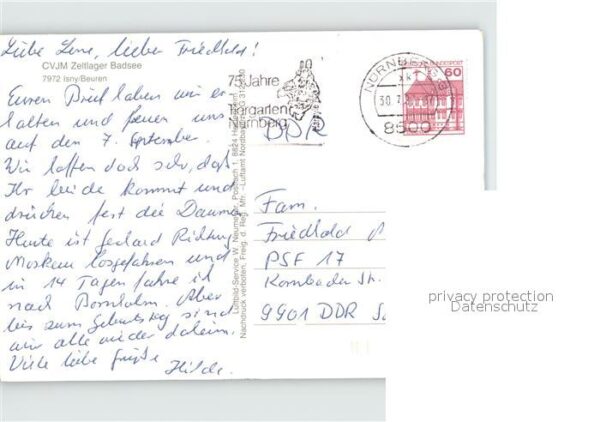 Liebe Lene, lieber Friedhold!
CVJM Zeltlager Badsee
7972 Isny/Beuren
Euren Brief haben wir er-
halten und freuen uns
auf den 7. September.
Wir hoffen doch sehr, daß
Ihr beide kommt und
drücken fest die Daumen
Heute ist Gerhard Richtung
Moskau losgefahren und
in 14 Tagen fahre ich
nach Bornholm. Aber
bis zum Geburtstag sind
wir alle wieder daheim.
Viele liebe Grüße
Hilde.
Luftbild-Service W. Neumeister, Postfach 1, 8824
Nachdruck verboten, Freig. d. Reg. Mfr. - Luftamt Nordbayern
75 Jahre
Tiergarten
Nürnberg
NÜRNBERG
30.7.
8500
BUNDESPOST
60
DDR
Fam.
Friedhold
PSF 17
Str.
9901 DDR
privacy protection
Datenschutz